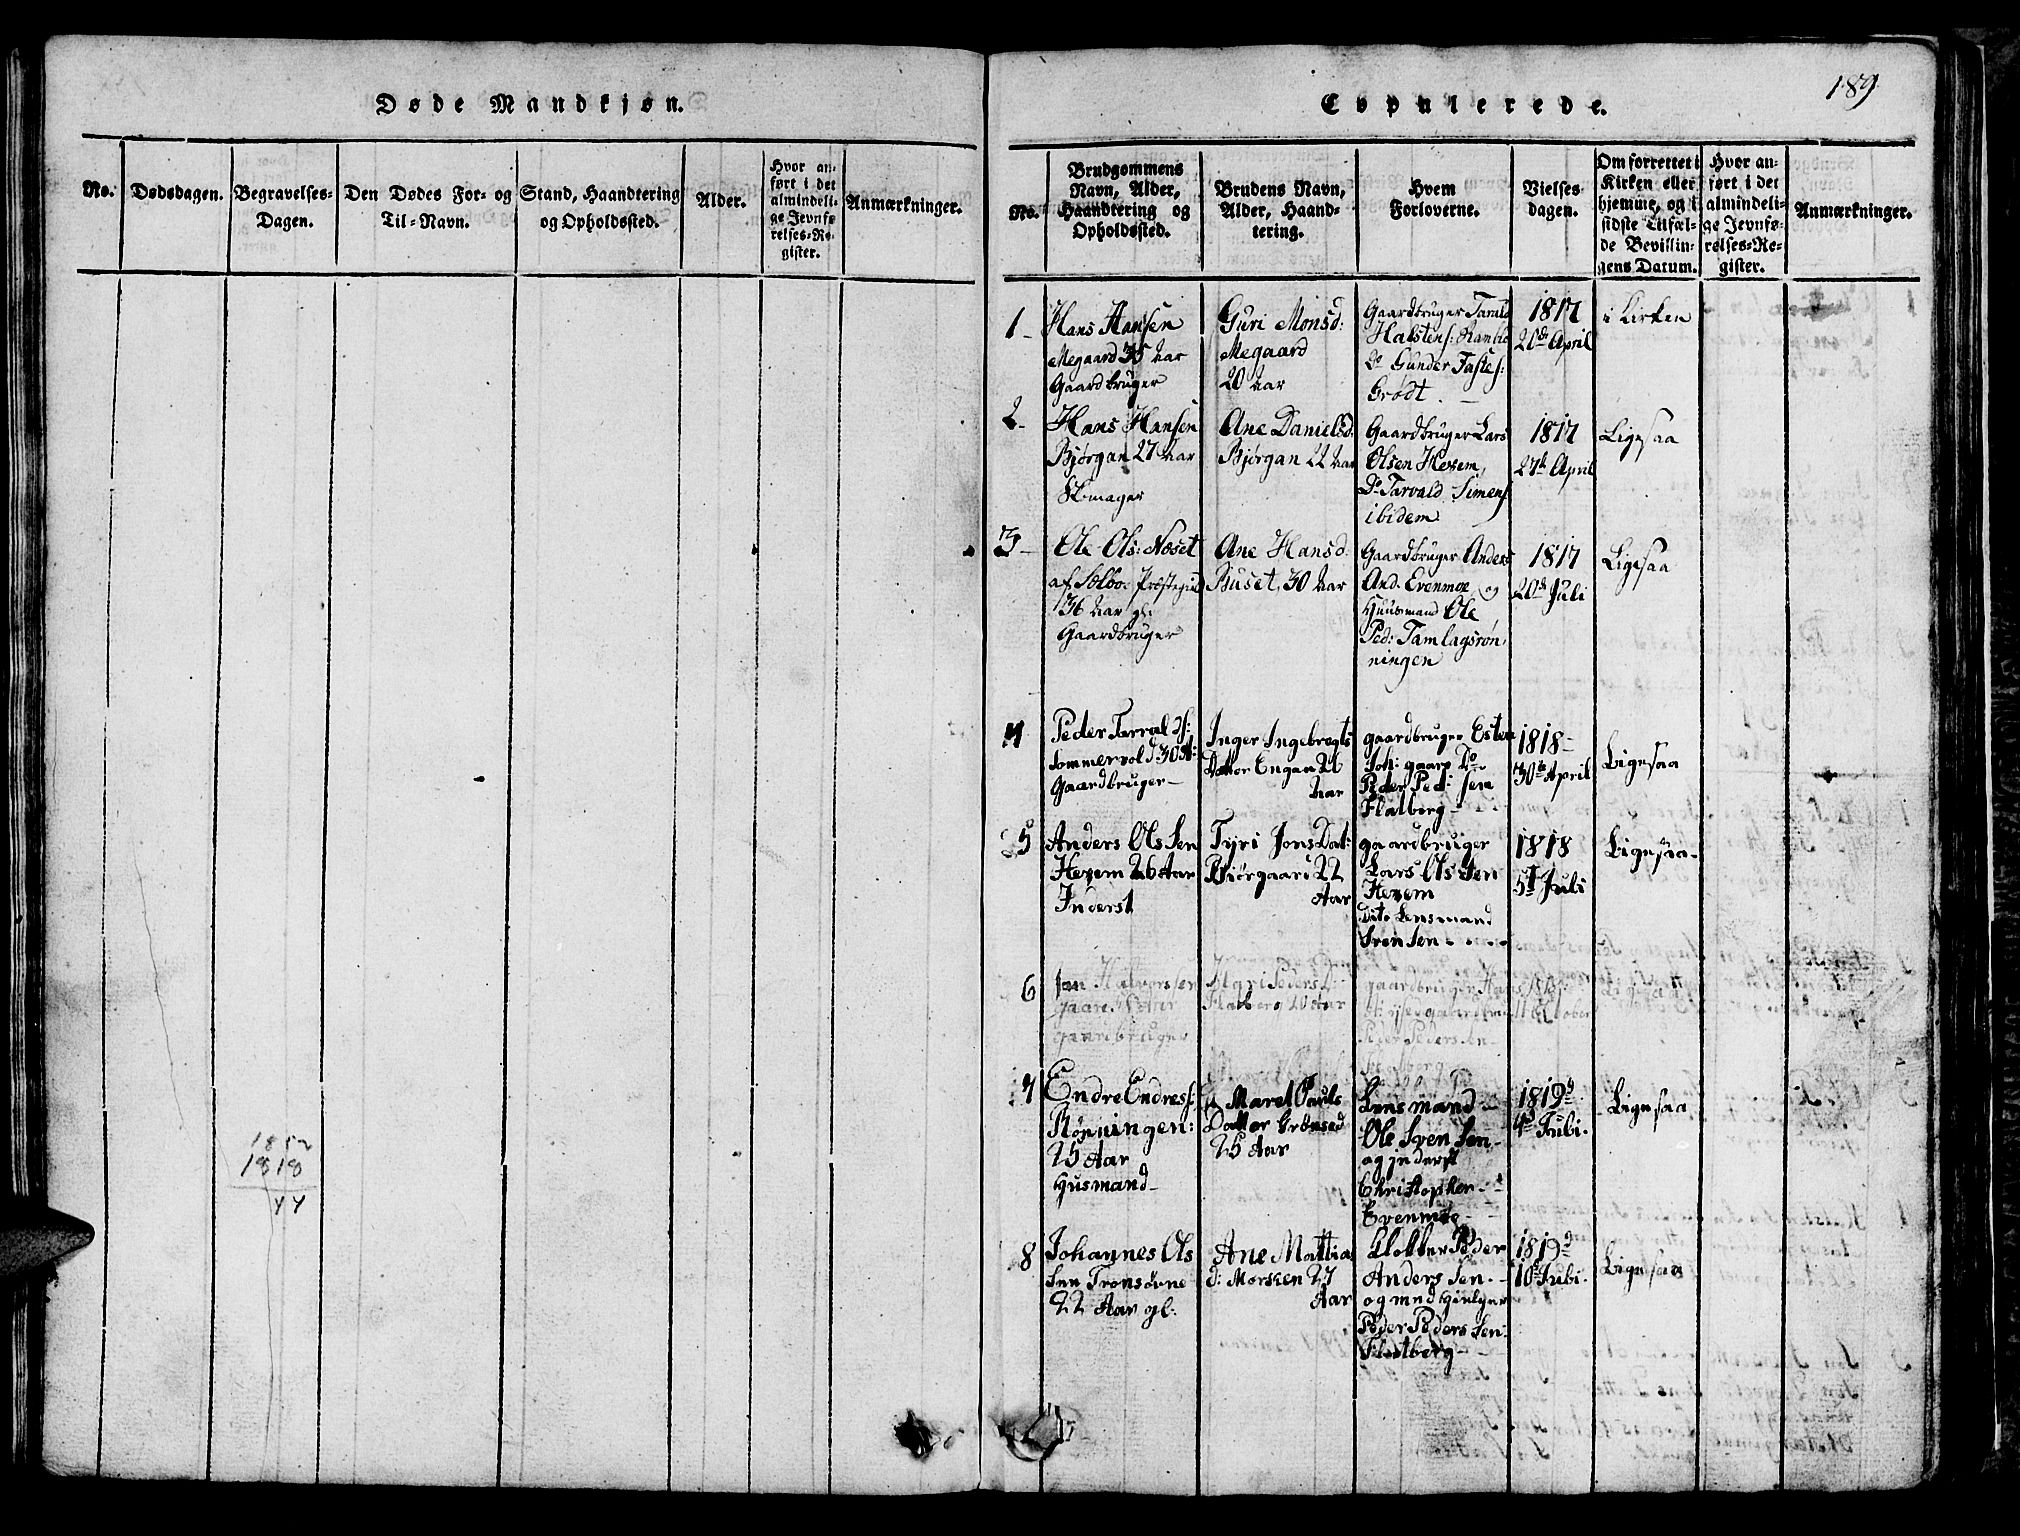 Døde Mandkjøn.
No.
Dødsdagen.
Begravelses-
Dagen.
Den Dødes For- og
Til-Navn.
Stand, Haandtering
og Opholdssted.
Alder.
Hvor an-
ført i det
almindeli-
ge Jevnfø-
relses-Re-
gister.
Anmærkninger.
1852
1818
44
189
Copulerede.
No.
Brudgommens
Navn, Alder,
Haandtering og
Opholdssted.
Brudens Navn,
Alder, Haand-
tering.
Hvem
Forloverne.
Vielses
dagen.
Om forrettet i
Kirken eller
hjemme, og i
sidste Tilfæl-
de Bevillin-
gens Datum.
Hvor an-
ført i det
almindeli-
ge Jevnfø-
relses-Re-
gister.
Anmærkninger.
1
Hans Hansen
Megaard 35 Aar
Gaardbruger
Guri Monsd:
Megaard
20 Aar
Gaardbruger Tarald
Halstens:
Do Gunder
Grødt.
1817
20de April
i Kirken
2
Hans Hansen
Bjørgan 27 Aar
Skomager
Ane Danielsd:
Bjørgan 22 Aar
Gaardbruger Lars
Olsen Hexem,
Do Tarvald Simens
ibidem
1817
27de April
Ligesaa
3
Ole Ols: Næset
af Sælboe Præstegield
36 Aar gl:
Gaardbruger
Ane Hansd:
Buset 30 Aar
Gaardbruger Anders
And: Evenmoe, og
Huusmand Ole
Ped: Tamlagsrøn-
ningen
1817
20de Juli
Ligesaa
4
Peder
Sommervold 30 A:
Gaardbruger
Inger Ingebregts
Datter Engan 26
Aar
gaardbruger Esten
Joh: gaare Do
Peder Ped: sen
Flatberg
1818
30te April
Ligesaa
5
Anders Ols Sen
Hexem 26 Aar
Inderst
Tyri Jons Dat:
Biørgaari 22
Aar
gaardbruger
Lars Ols Sen
Hexem
Dito Lensmand
Sven Sen
1818
5t Juli
Ligesaa
6
Jon Halvorsen
gaare Aar
gaardbruger
Mari Peders D
Flatberg 20 Aar
gaardbruger Hans
Peder Peders sen
Flatberg
7
Endre Endres:
Rønningen:
25 Aar
Husmand
Maret Pauls
Datter Grønsed
25 Aar
Lensmand
Ole Sven Sen
og inderst
Christopher
Evenmoe
1819
4de Jubi.
Ligesaa
8
Johannes Ols
Sen Tronsøvne
22 Aar gl:
Ane Mattia
d: Morseen 27
Aar
Klokker Peder
Anders Sen.
og medhielger
Peder Peders Sen:
Flatberg
1819
10de Jubi.
Ligesaa